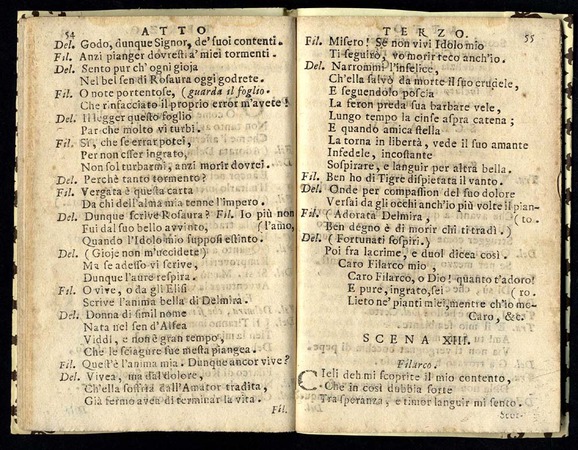 54 ATTO
Del. Godo, dunque Signor, de' suoi contenti.
Fil. Anzi pianger dovresti a' miei tormenti.
Del. Sento pur ch'ogni gioja
Nel bel sen di Rosaura oggi godrete.
Fil. O note portentose, (guarda il foglio.
Che rinfacciato il proprio error m'avete!
Del. Il legger questo foglio
Par che molto vi turbi.
Fil. Sì, che se error potei,
Per non esser ingrato,
Non sol turbarmi, anzi morir dovrei.
Del. Perchè tanto tormento?
Fil. Vergata è questa carta
Da chi dell'alma mia tenne l'impero.
Del. Dunque scrive Rosaura? Fil. Io più non
Fui dal suo bello avvinto, (l'amo,
Quando l'Idolo mio supposi estinto.
Del. (Gioje non m'uccidete)
Ma se adesso vi scrive,
Dunque l'aure respira.
Fil. O vive, o da gli Elisi
Scrive l'anima bella di Delmira.
Del. Donna di simil nome
Nata nel sen d'Alfea
Viddi, e non è gran tempo,
Che le sciagure sue mesta piangea.
Fil. Quest'è l'anima mia. Dunque ancor vive?
Del. Vivea, ma dal dolore,
Ch'ella soffrìa dall'Amator tradita,
Già fermo avea di terminar la vita.
Fil.
TERZO. 55
Fil. Misero! Se non vivi Idolo mio
Ti seguirò, vo morir teco anch'io.
Del. Narrommi l'infelice,
Ch'ella salvò da morte il suo crudele,
E seguendolo poscia
La feron preda sua barbare vele,
Lungo tempo la cinse aspra catena;
E quando amica stella
La torna in libertà, vede il suo amante
Infedele, incostante
Sospirare, e languir per altra bella.
Fil. Ben ho di Tigre dispietata il vanto.
Del. Onde per compassion del suo dolore
Versai da gli occhi anch'io più volte il pian-
Fil. (Adorata Delmira, (to.
Ben degno è di morir chi ti tradì.)
Del. (Fortunati sospiri.)
Poi fra lacrime, e duol dicea così.
Caro Filarco mio,
Caro Filarco, o Dio! quanto t'adoro!
E pure, ingrato, sei (ro.
Lieto ne' pianti miei, mentre ch'io mo-
Caro, &c.
SCENA XIII.
Filarco.
Cieli deh mi scoprite il mio contento,
Che in così dubbia sorte
Tra speranza, e timor languir mi sento.